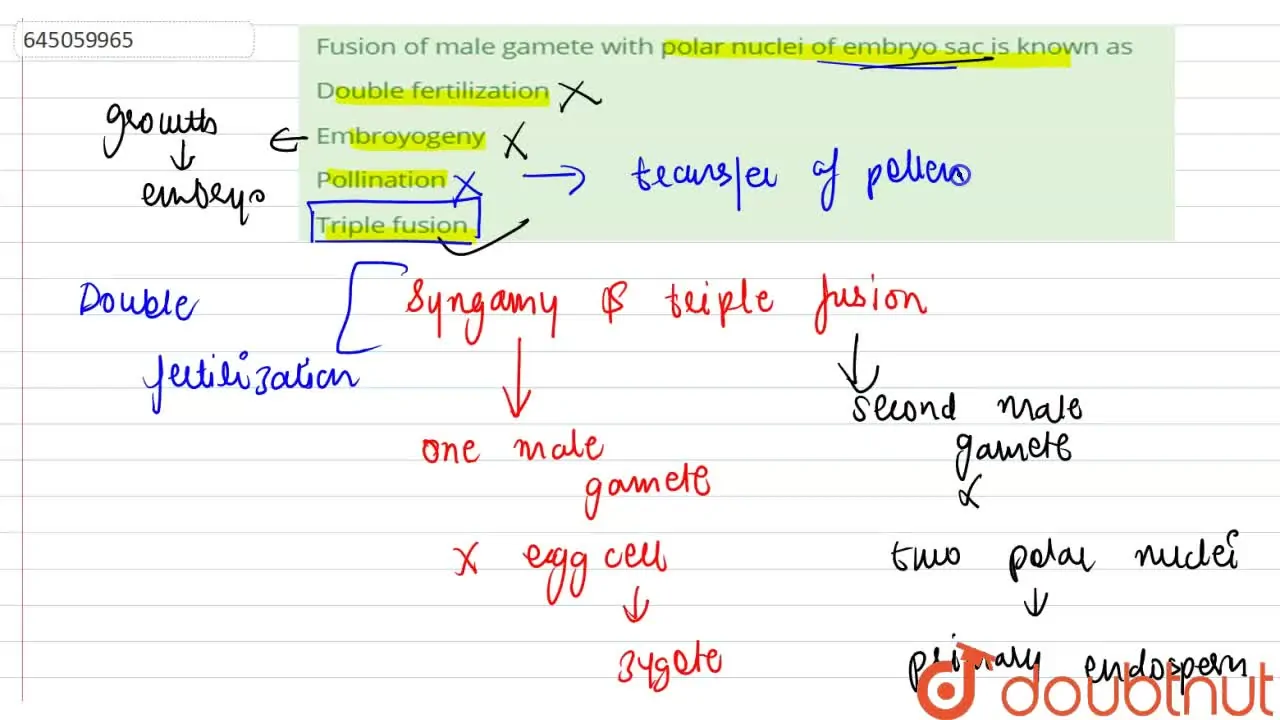 645059965
Fusion of male gamete with polar nuclei of embryo sac is known as
Double fertilization
Embroyogeny
Pollination
Triple fusion
growth
embryo
transfer of pollen
Double
fertilization
Syngamy & triple fusion
one male
gamete
X egg cell
zygote
second male
gamete
&
two polar nuclei
primary endosperm
doubtnut